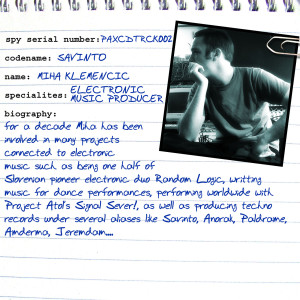 spy serial number: PAXCDTRCK002
codename: SAVINTO
name: MIHA KLEMENCIC
specialites: ELECTRONIC
MUSIC PRODUCER
biography:
for a decade Miha has been
involved in many projects
connected to electronic
music such as being one half of
Slovenian pioneer electronic duo Random Logic, writting
music for dance performances, performing worldwide with
Project Atol's Signal Sever!, as well as producing techno
records under several aliases like Savinto, Anorak, Paldrome,
Amderma, Jeremdam....